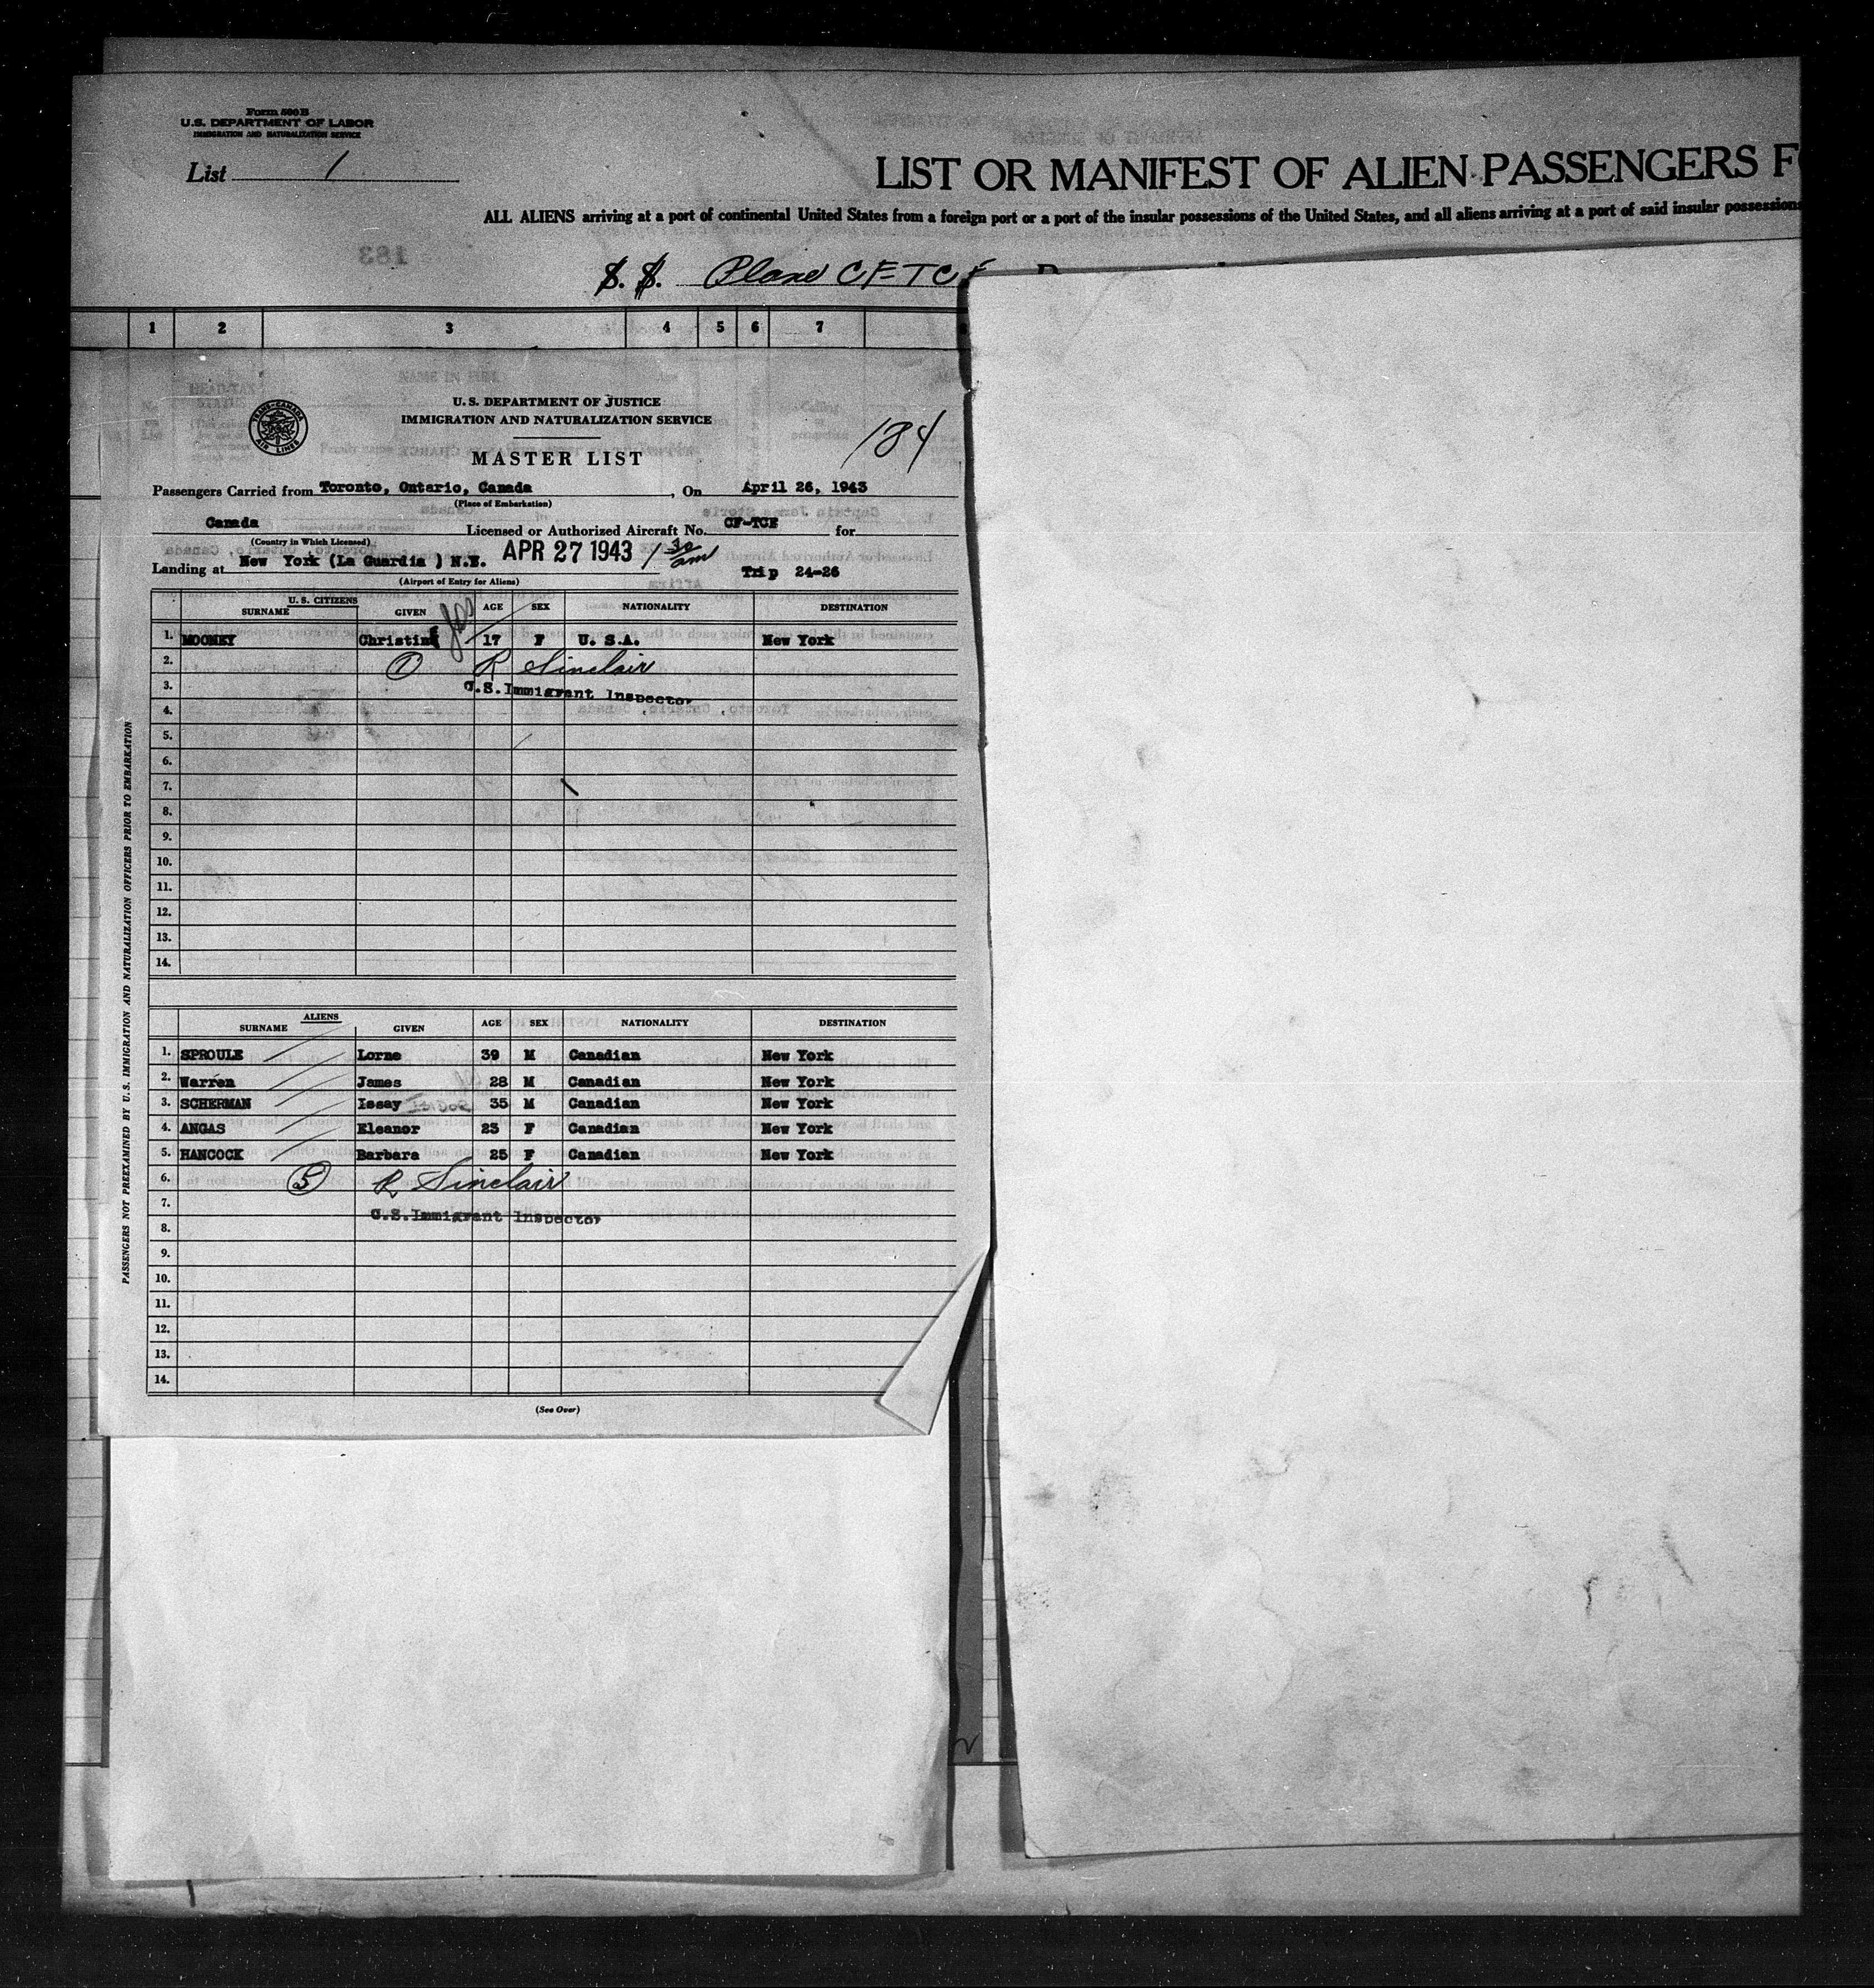 Form 500B
U.S. DEPARTMENT OF LABOR
IMMIGRATION AND NATURALIZATION SERVICE
List 1
LIST OR MANIFEST OF ALIEN PASSENGERS F
ALL ALIENS arriving at a port of continental United States from a foreign port or a port of the insular possessions of the United States, and all aliens arriving at a port of said insular possessions
183
S. S. Plane CF-TCF
1 2 3 4 5 6 7
TRANS-CANADA AIR LINES
U. S. DEPARTMENT OF JUSTICE
IMMIGRATION AND NATURALIZATION SERVICE
184
MASTER LIST
Passengers Carried from Toronto, Ontario, Canada, On April 26, 1943
(Place of Embarkation)
Canada Licensed or Authorized Aircraft No. CF-TCF for
(Country in Which Licensed)
APR 27 1943 1 30 am
Landing at New York (La Guardia ) N.Y. Trip 24-26
(Airport of Entry for Aliens)
U. S. CITIZENS
SURNAME GIVEN AGE SEX NATIONALITY DESTINATION
1. MOONEY Christine 17 F U. S.A. New York
2. 1 R Sinclair
3. U.S. Immigrant Inspector
4.
5.
6.
7.
8.
9.
10.
11.
12.
13.
14.
ALIENS
SURNAME GIVEN AGE SEX NATIONALITY DESTINATION
1. SPROULE Lorne 39 M Canadian New York
2. Warren James 28 M Canadian New York
3. SCHERMAN Issay 35 M Canadian New York
4. ANGAS Eleanor 23 F Canadian New York
5. HANCOCK Barbara 25 F Canadian New York
6. 5 R Sinclair
7. U.S. Immigrant Inspector
8.
9.
10.
11.
12.
13.
14.
(See Over)
PASSENGERS NOT PREEXAMINED BY U.S. IMMIGRATION AND NATURALIZATION OFFICERS PRIOR TO EMBARKATION